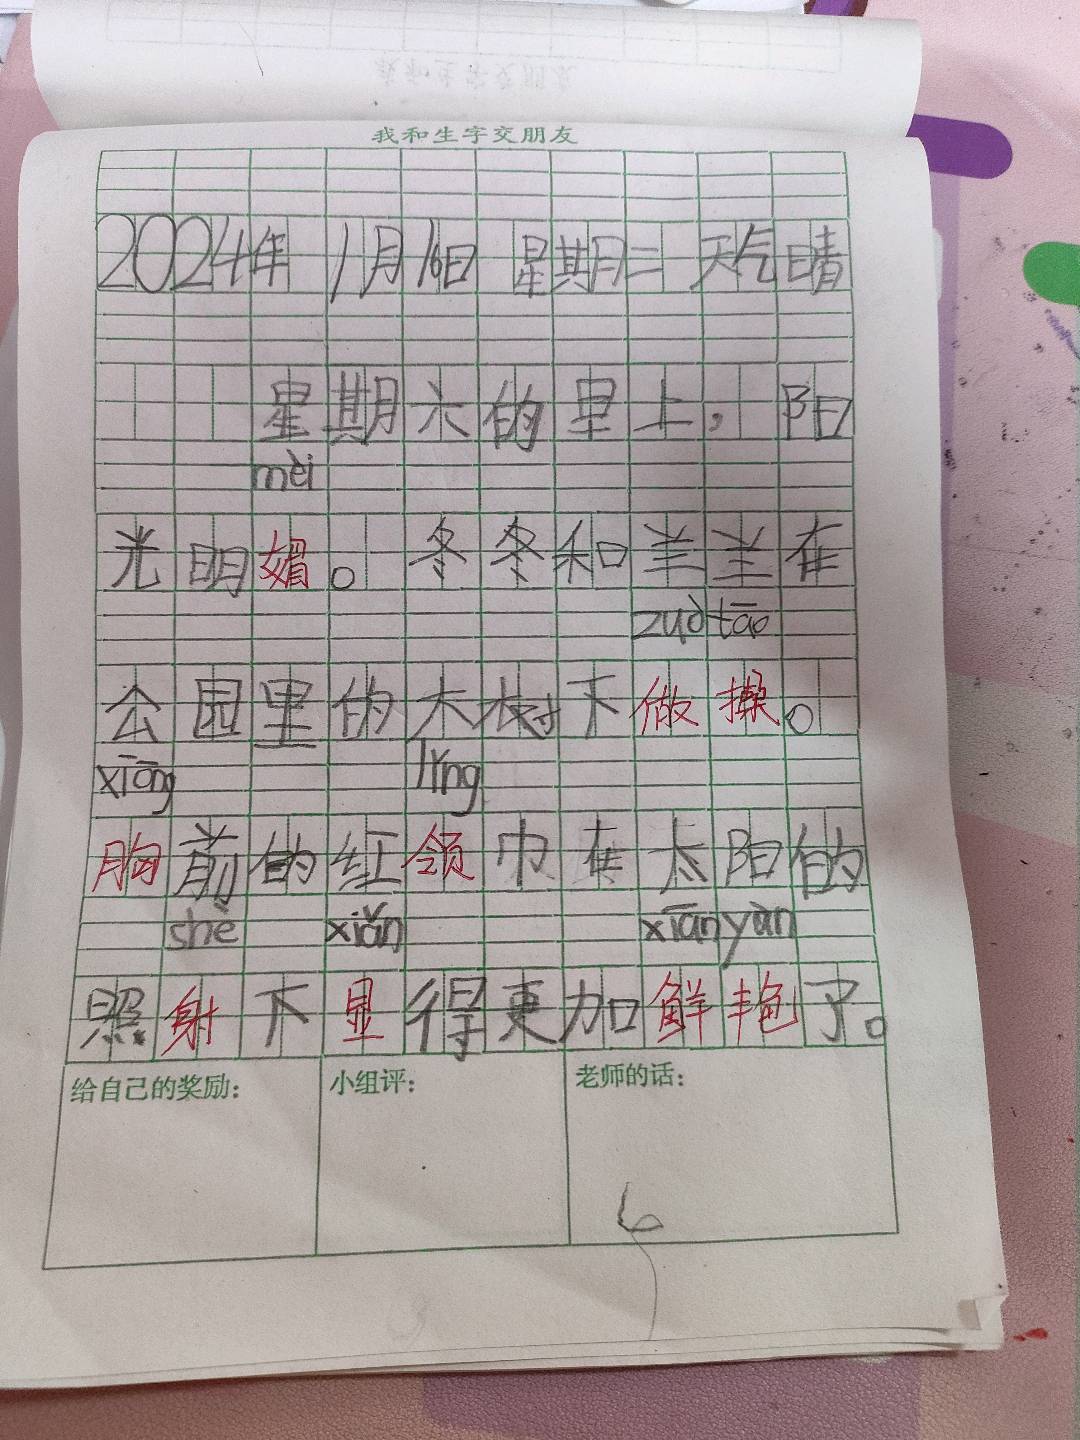 我和生字交朋友
2024年 1月16日 星期二 天气晴
星期六的早上，阳
mèi
光明媚。冬冬和兰兰在
zuò tāo
公园里的大树下做操。
xiōng lǐng
胸前的红领巾在太阳的
shè xiǎn xiān yàn
照射下显得更加鲜艳了。
给自己的奖励：
小组评：
老师的话：